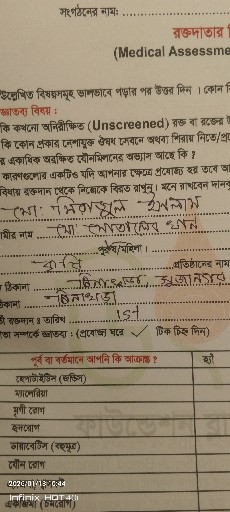 সংগঠনের নাম: ..............
রক্তদাতার
(Medical Assessme
উল্লেখিত বিষয়সমূহ ভালভাবে পড়ার পর উত্তর দিন । কোন
জ্ঞাতব্য বিষয় :
কি কখনো অনিরীক্ষিত (Unscreened) রক্ত বা রক্তের
কি কোন প্রকার নেশাযুক্ত ঔষধ সেবনে অথবা শিরায় নিতে/
একাধিক অরক্ষিত যৌনমিলনের অভ্যাস আছে কি ?
কারণগুলোর একটিও যদি আপনার ক্ষেত্রে প্রযোজ্য হয় তবে
বিধায় রক্তদান থেকে নিজেকে বিরত রাখুন। মনে রাখবেন
মো: মিরাজুল ইসলাম
নাম মো: মোতালেব খান
পুরুষ/মহিলা ।
প্রতিষ্ঠানের নাম
ঠিকানা চিনাখড়া, সুজানগর
চিনাখড়া
রক্তদান ও তারিখ 1st
সম্পর্কে জ্ঞাতব্য : (প্রযোজ্য ঘরে ✓ টিক চিহ্ন দিন)
পূর্বে বা বর্তমানে আপনি কি আক্রান্ত ? হ্যাঁ
হেপাটাইটিস (জন্ডিস)
ম্যালেরিয়া
মৃগী রোগ
হৃদরোগ
ডায়াবেটিস (বহুমূত্র)
যৌন রোগ
2026/01/13 10:44
Infinix HOT 40i
একজিমা (চর্মরোগ)
ফাউন্ডেশন